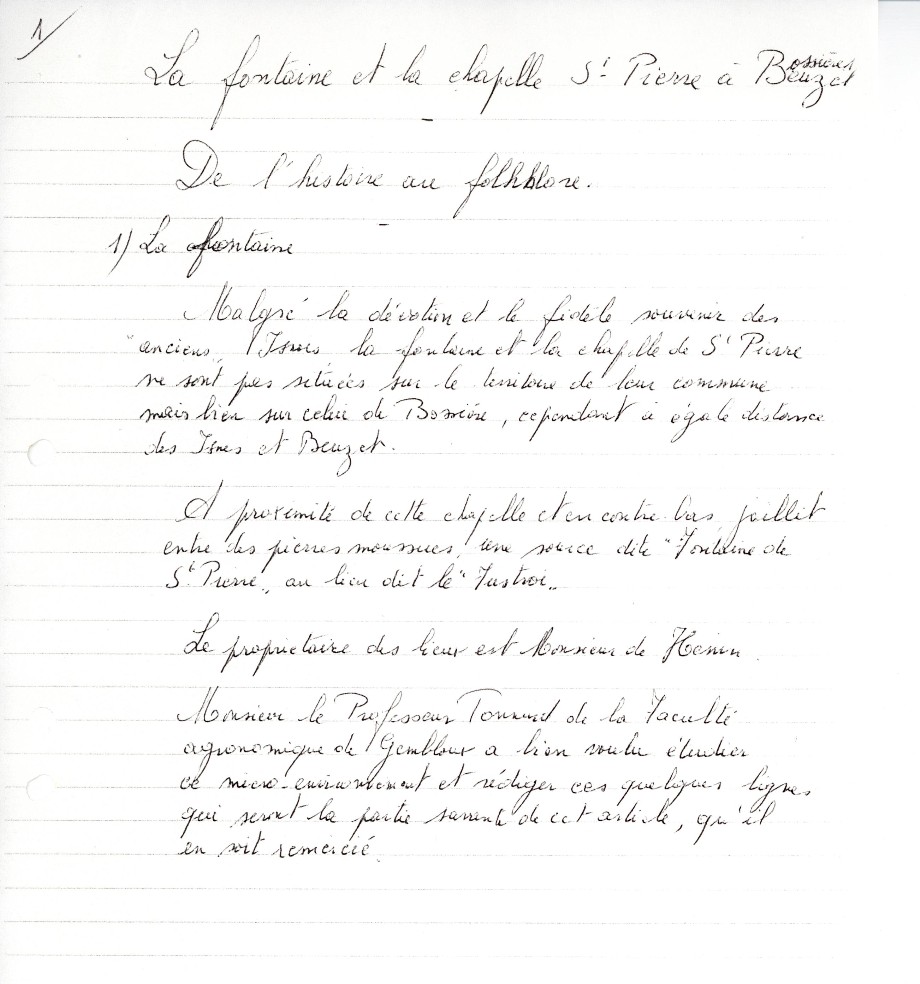 1/
La fontaine et la chapelle St Pierre à Beuzet
ossières
De l'histoire au folklore.
1) La fontaine
Malgré la dévotion et le fidèle souvenir des
"anciens" Isnes, la fontaine et la chapelle de St Pierre
ne sont pas situées sur le territoire de leur commune
mais bien sur celui de Bossière, cependant à égale distance
des Isnes et Beuzet.
A proximité de cette chapelle et en contre-bas, jaillit
entre des pierres moussues, une source dite "Fontaine de
St Pierre", au lieu dit le
Le propriétaire des lieux est Monsieur de
Monsieur le Professeur de la Faculté
agronomique de Gembloux a bien voulu étudier
ce micro-environnement et rédiger ces quelques lignes
qui seront la partie savante de cet article, qu'il
en soit remercié.